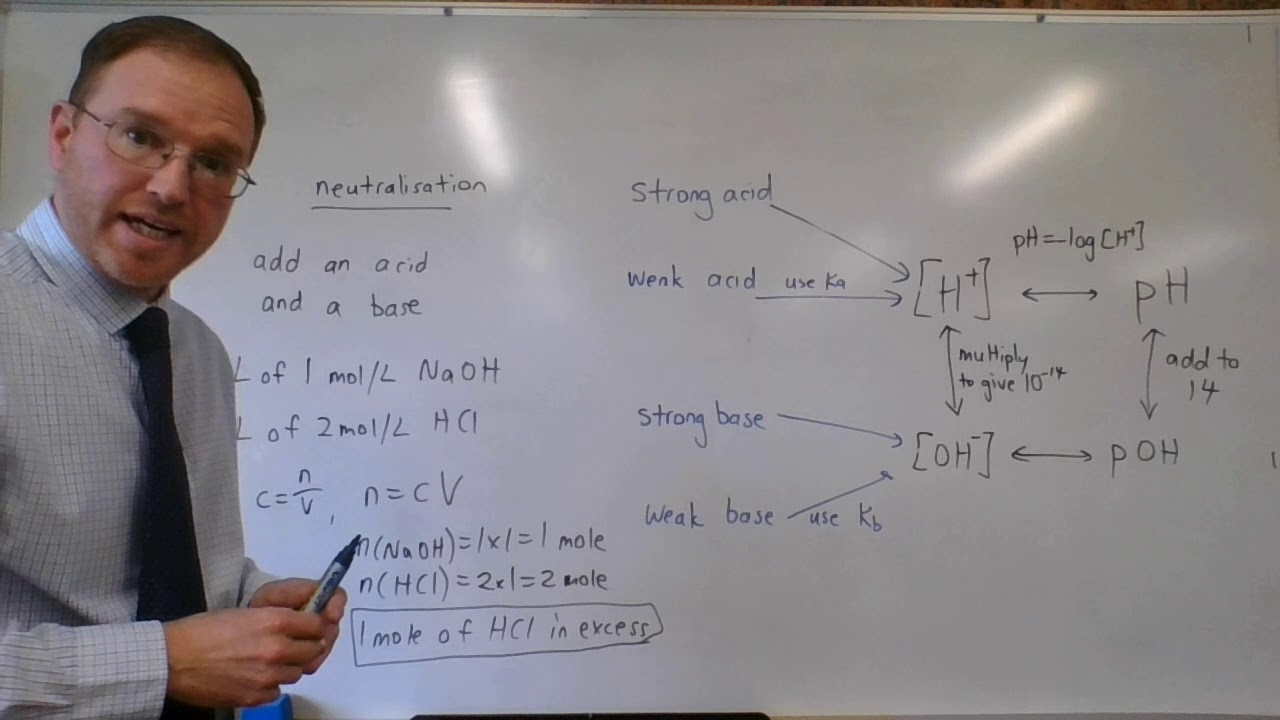 neutralisation
add an acid
and a base
L of 1 mol/L NaOH
L of 2mol/L HCl
c=n/V, n=cV
n(NaOH)=1x1=1 mole
n(HCl)=2x1=2 mole
1 mole of HCl in excess
Strong acid
Weak acid use Ka
[H⁺] ↔ pH
pH=-log[H⁺]
multiply
to give 10⁻¹⁴
add to
14
Strong base
[OH⁻] ↔ pOH
Weak base use Kb